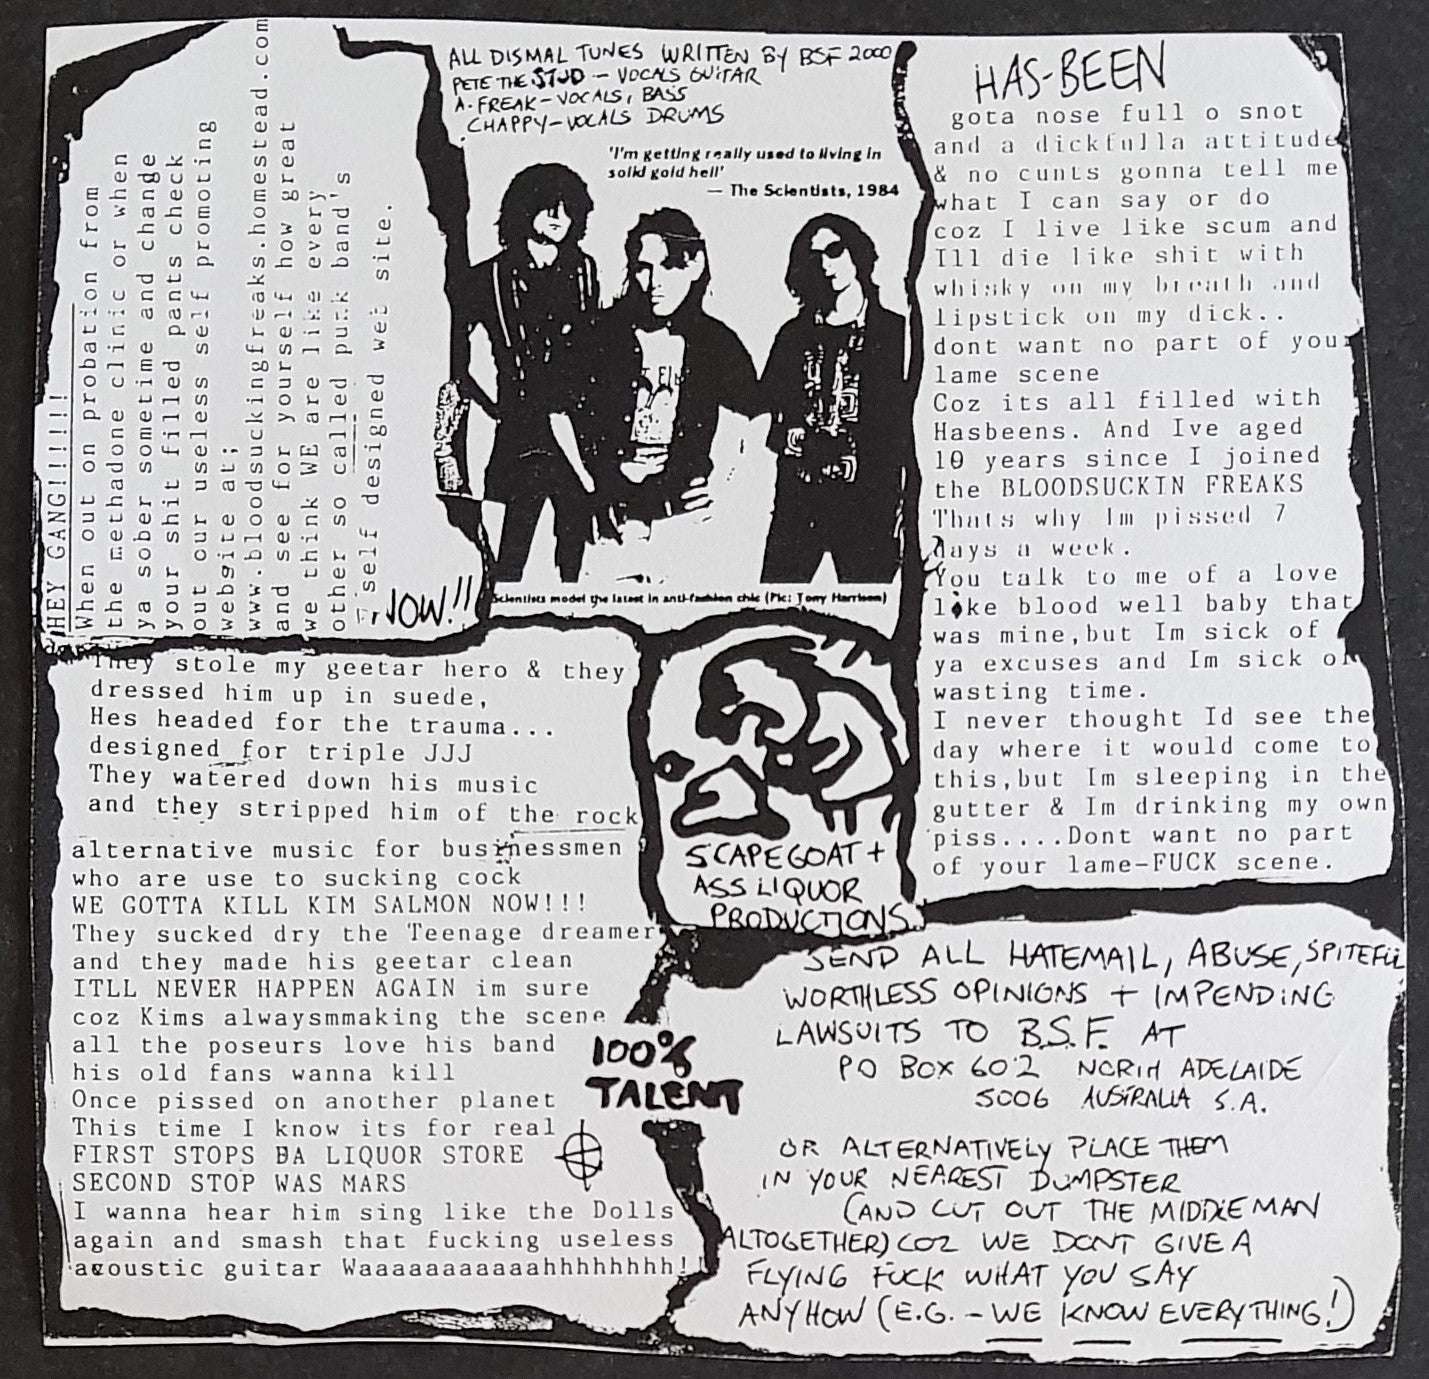 HEY GANG!!!!!!
When out on probation from
the methadone clinic or when
ya sober sometime and change
your shit filled pants check
out our useless self promoting
website at;
www.bloodsuckingfreaks.homestead.com
and see for yourself how great
we think WE are like every
other so called punk band's
self designed web site.
NOW!!
ALL DISMAL TUNES WRITTEN BY BSF 2000
PETE THE STUD - VOCALS GUITAR
A. FREAK - VOCALS, BASS
CHAPPY - VOCALS DRUMS
'I'm getting really used to living in
solid gold hell'
— The Scientists, 1984
Scientists model the latest in anti-fashion chic (Pic: Tony Harrison)
HAS-BEEN
gota nose full o snot
and a dickfulla attitude
& no cunts gonna tell me
what I can say or do
coz I live like scum and
Ill die like shit with
whisky on my breath and
lipstick on my dick..
dont want no part of your
lame scene
Coz its all filled with
Hasbeens. And Ive aged
10 years since I joined
the BLOODSUCKIN FREAKS
Thats why Im pissed 7
days a week.
You talk to me of a love
like blood well baby that
was mine,but Im sick of
ya excuses and Im sick of
wasting time.
I never thought Id see the
day where it would come to
this,but Im sleeping in the
gutter & Im drinking my own
piss....Dont want no part
of your lame-FUCK scene.
They stole my geetar hero & they
dressed him up in suede,
Hes headed for the trauma...
designed for triple JJJ
They watered down his music
and they stripped him of the rock
alternative music for businessmen
who are use to sucking cock
WE GOTTA KILL KIM SALMON NOW!!!
They sucked dry the Teenage dreamer
and they made his geetar clean
ITLL NEVER HAPPEN AGAIN im sure
coz Kims alwaysmmaking the scene
all the poseurs love his band
his old fans wanna kill
Once pissed on another planet
This time I know its for real
FIRST STOPS DA LIQUOR STORE
SECOND STOP WAS MARS
I wanna hear him sing like the Dolls
again and smash that fucking useless
acoustic guitar Waaaaaaaaaaaahhhhhhhhh!!
SCAPEGOAT +
ASS LIQUOR
PRODUCTIONS.
100%
TALENT
SEND ALL HATEMAIL, ABUSE, SPITEFUL
WORTHLESS OPINIONS + IMPENDING
LAWSUITS TO B.S.F. AT
PO BOX 602 NORTH ADELAIDE
5006 AUSTRALIA S.A.
OR ALTERNATIVELY PLACE THEM
IN YOUR NEAREST DUMPSTER
(AND CUT OUT THE MIDDLE MAN
ALTOGETHER) COZ WE DONT GIVE A
FLYING FUCK WHAT YOU SAY
ANYHOW (E.G. - WE KNOW EVERYTHING!)